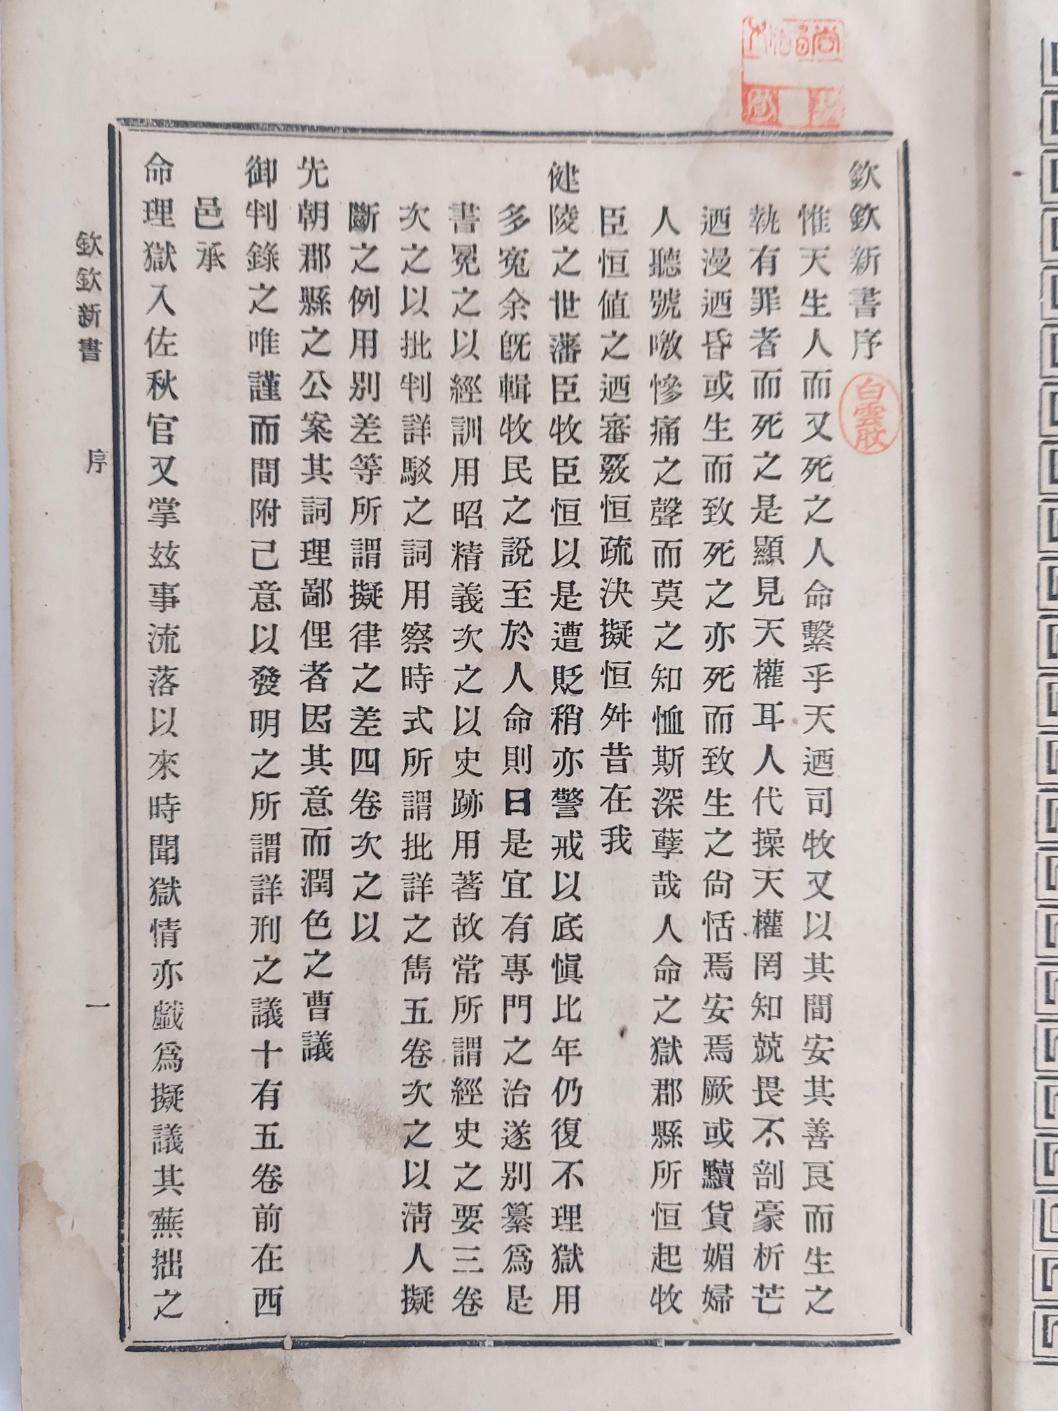 欽欽新書序
惟天生人而又死之人命繫乎天迺司牧又以其間安其善良而生之
執有罪者而死之是顯見天權耳人代操天權罔知兢畏不剖豪析芒
迺漫迺昏或生而致死之亦死而致生之尙恬焉安焉厥或黷貨媚婦
人聽號噭慘痛之聲而莫之知恤斯深孽哉人命之獄郡縣所恒起牧
臣恒値之迺審覈恒疏決擬恒舛昔在我
健陵之世藩臣牧臣恒以是遭貶稍亦警戒以底愼比年仍復不理獄用
多寃余旣輯牧民之說至於人命則曰是宜有專門之治遂別纂爲是
書冕之以經訓用昭精義次之以史跡用著故常所謂經史之要三卷
次之以批判詳駁之詞用察時式所謂批詳之雋五卷次之以淸人擬
斷之例用別差等所謂擬律之差四卷次之以
先朝郡縣之公案其詞理鄙俚者因其意而潤色之曹議
御判錄之唯謹而間附己意以發明之所謂詳刑之議十有五卷前在西
邑承
命理獄入佐秋官又掌玆事流落以來時聞獄情亦戱爲擬議其蕪拙之
欽欽新書 序 一
白雲